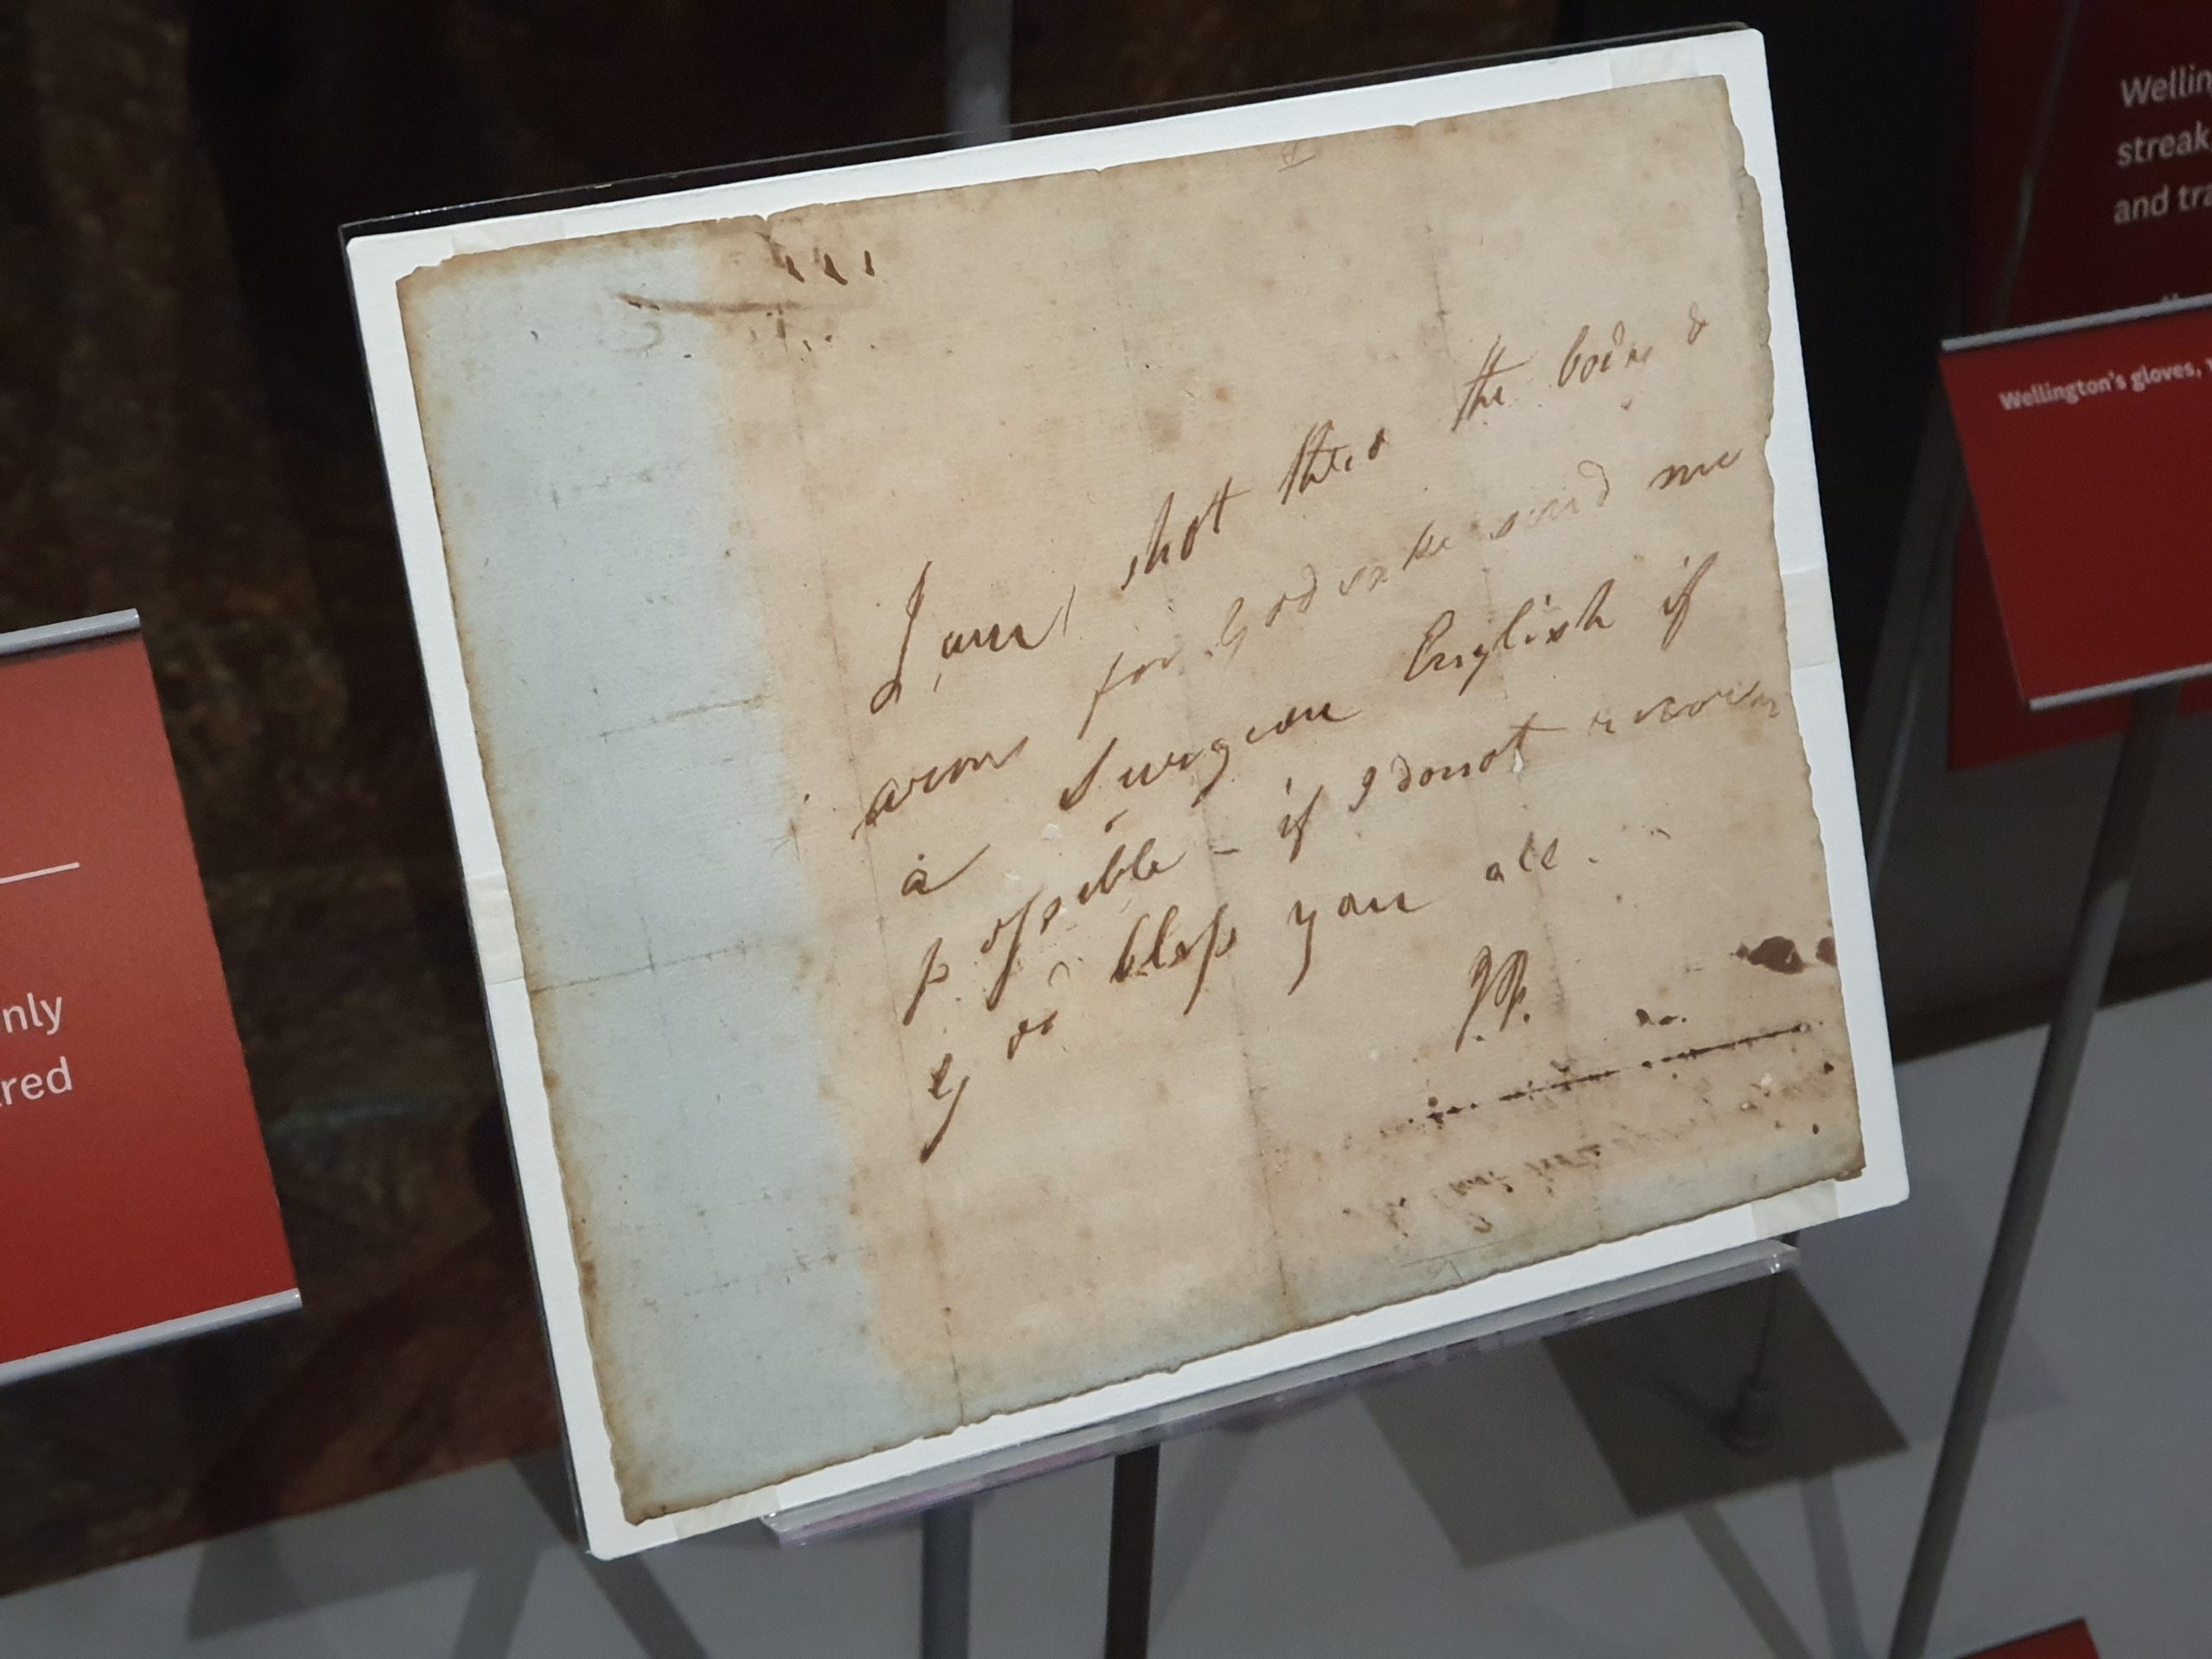 I am shot thro the body &
arm for Gods sake send me
a Surgeon English if
possible - if I do not recover
God bless you all.
Wellin
streak
and tra
Wellington's gloves,
nly
red